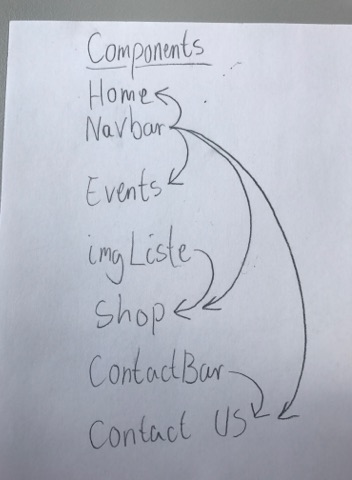 Components
Home
Navbar
Events
imgListe
Shop
ContactBar
Contact Us